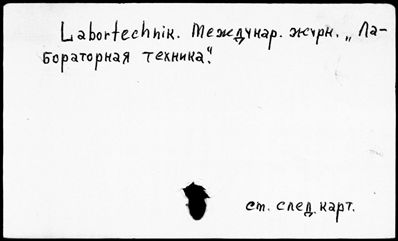 Labortechnik. Междунар. журн. „Ла-
бораторная техника".
ст. след. карт.